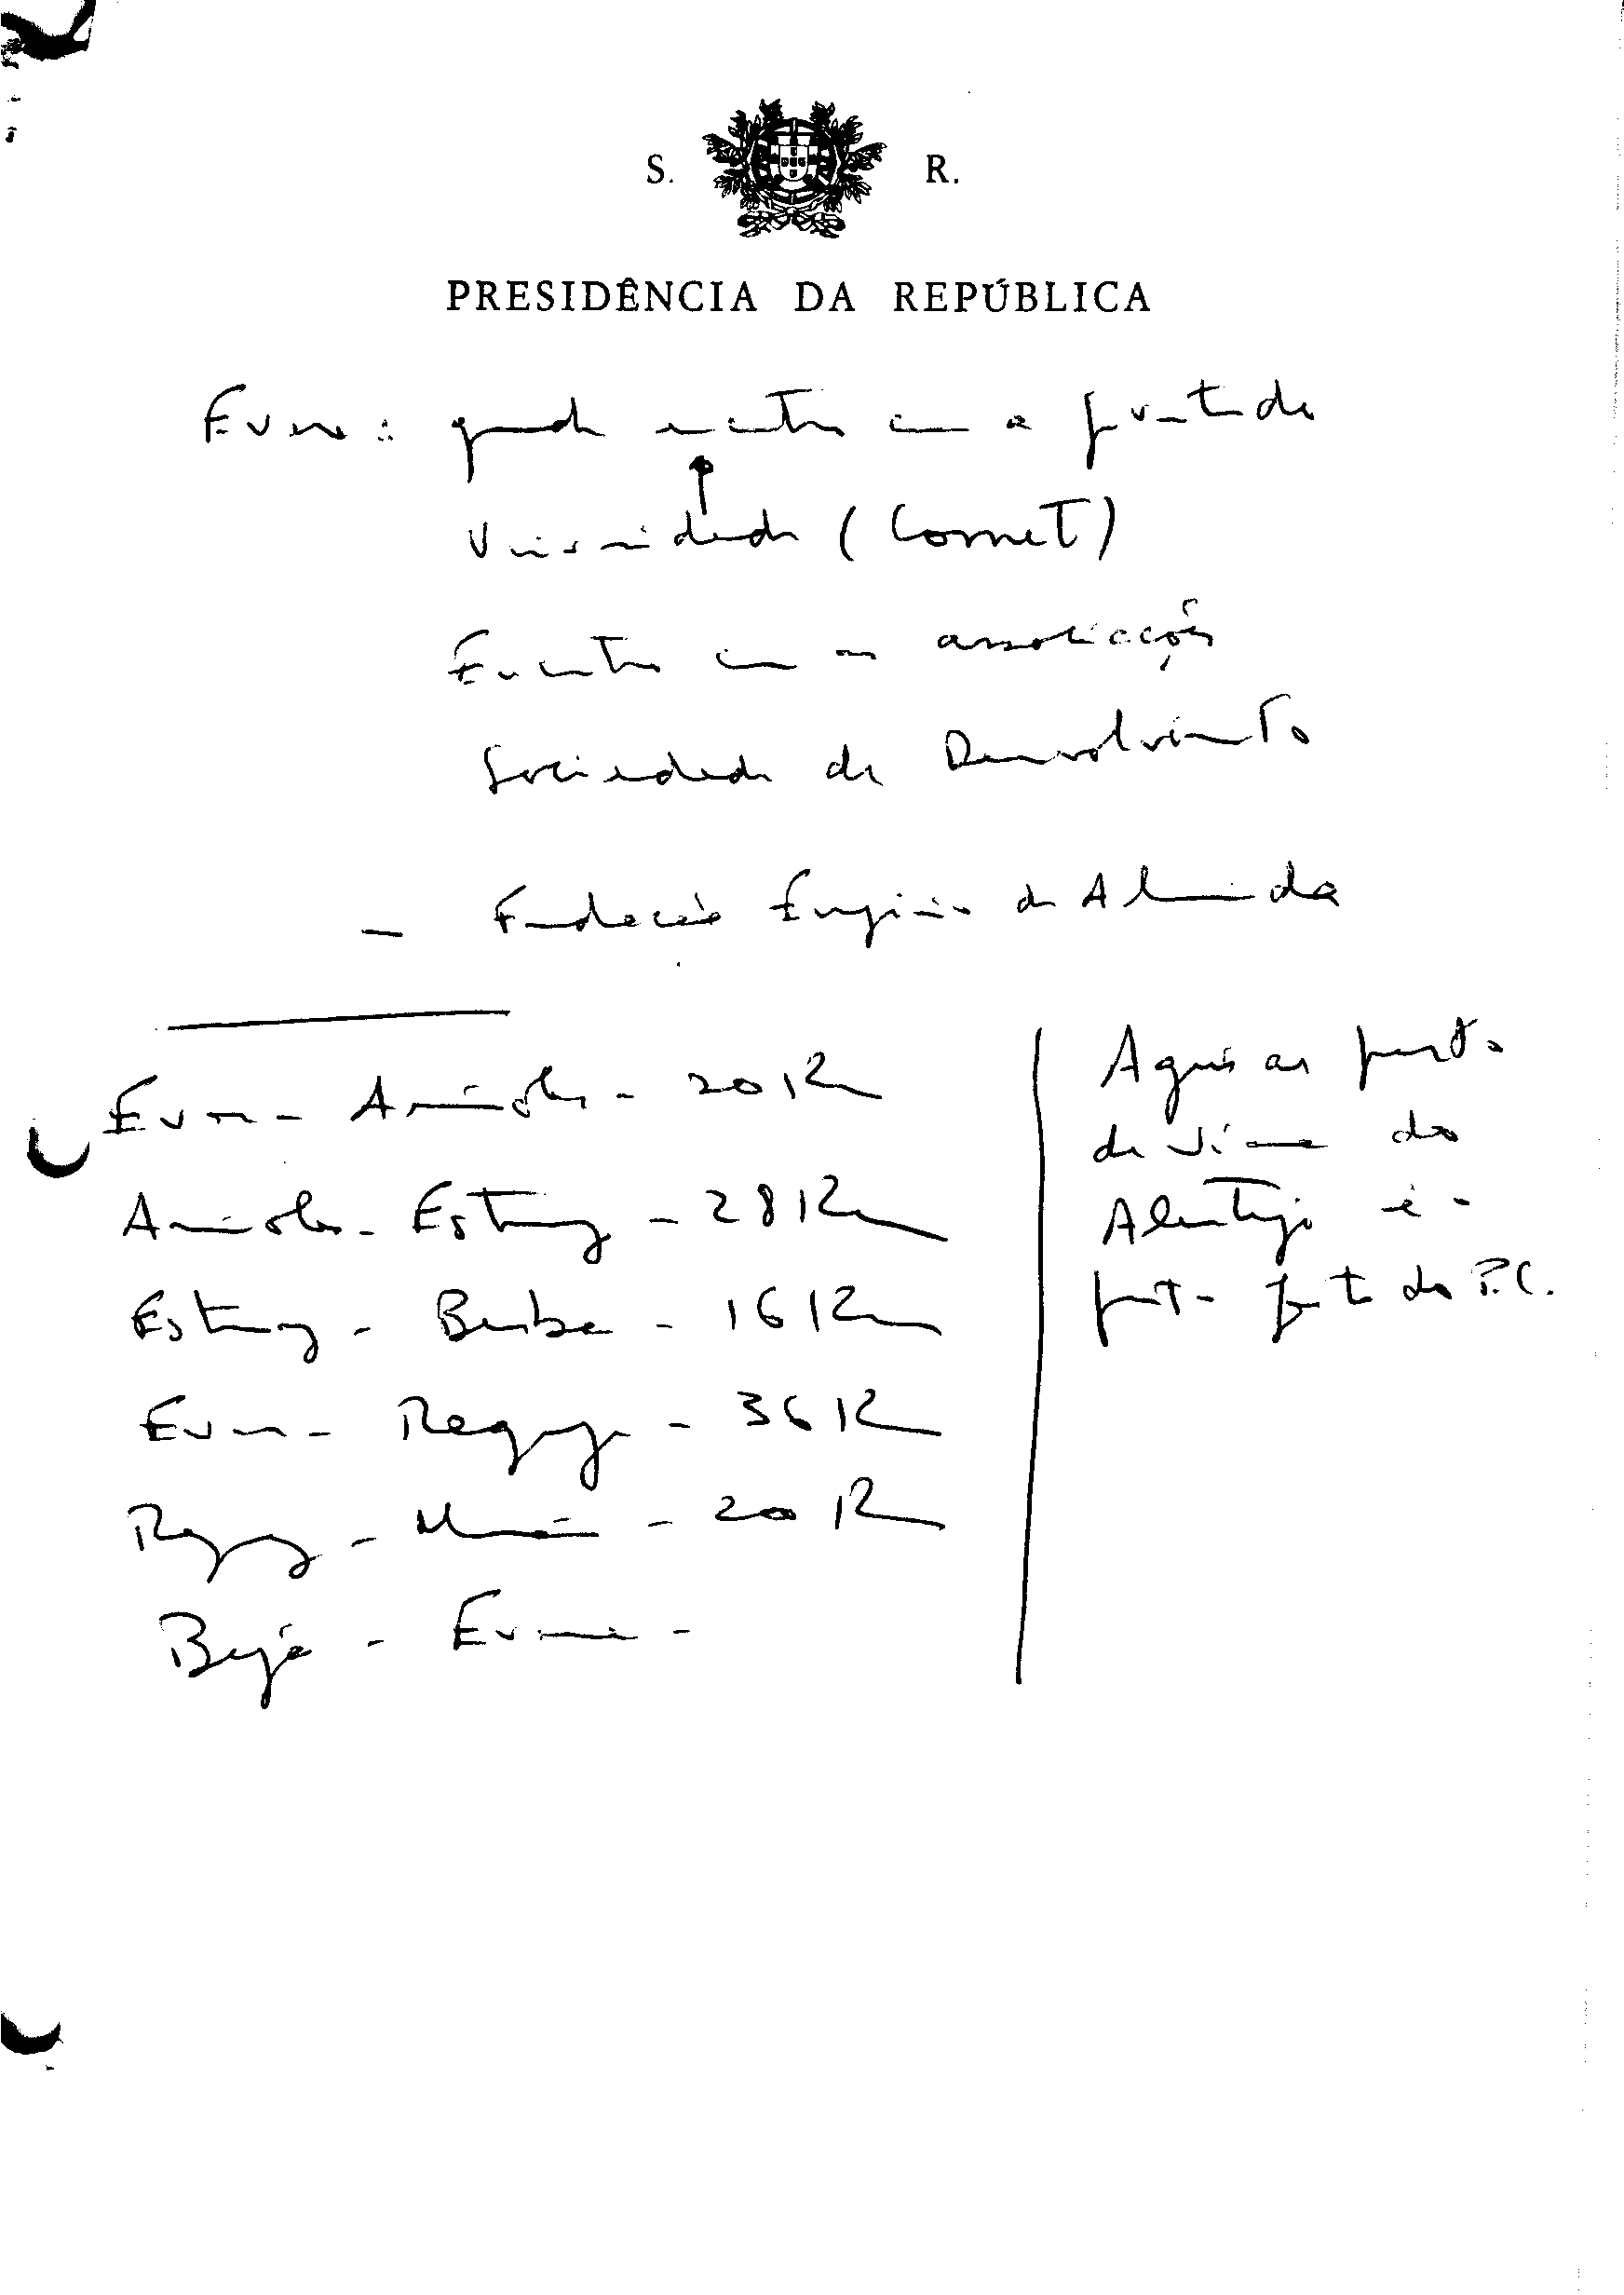 S. R.
PRESIDÊNCIA DA REPÚBLICA
Evora: grande encontro com a gente da
Universidade (Comet)
Encontro com as associações
Sociedade de Desenvolvimento
- Fundação Eugénio de Almeida
Evora - Arraiolos - 20 Km
Arraiolos - Estremoz - 28 Km
Estremoz - Borba - 16 Km
Evora - Reguengos - 36 Km
Reguengos - Mourão - 20 Km
Beja - Evora -
Aqui as
de do
Alentejo é
do P.C.